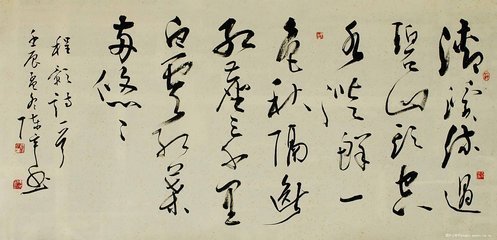 清溪流過
碧山頭空
水澄鮮一
色秋隔斷
紅塵三十里
白雲紅葉
兩悠々
程顥詩一首
壬辰